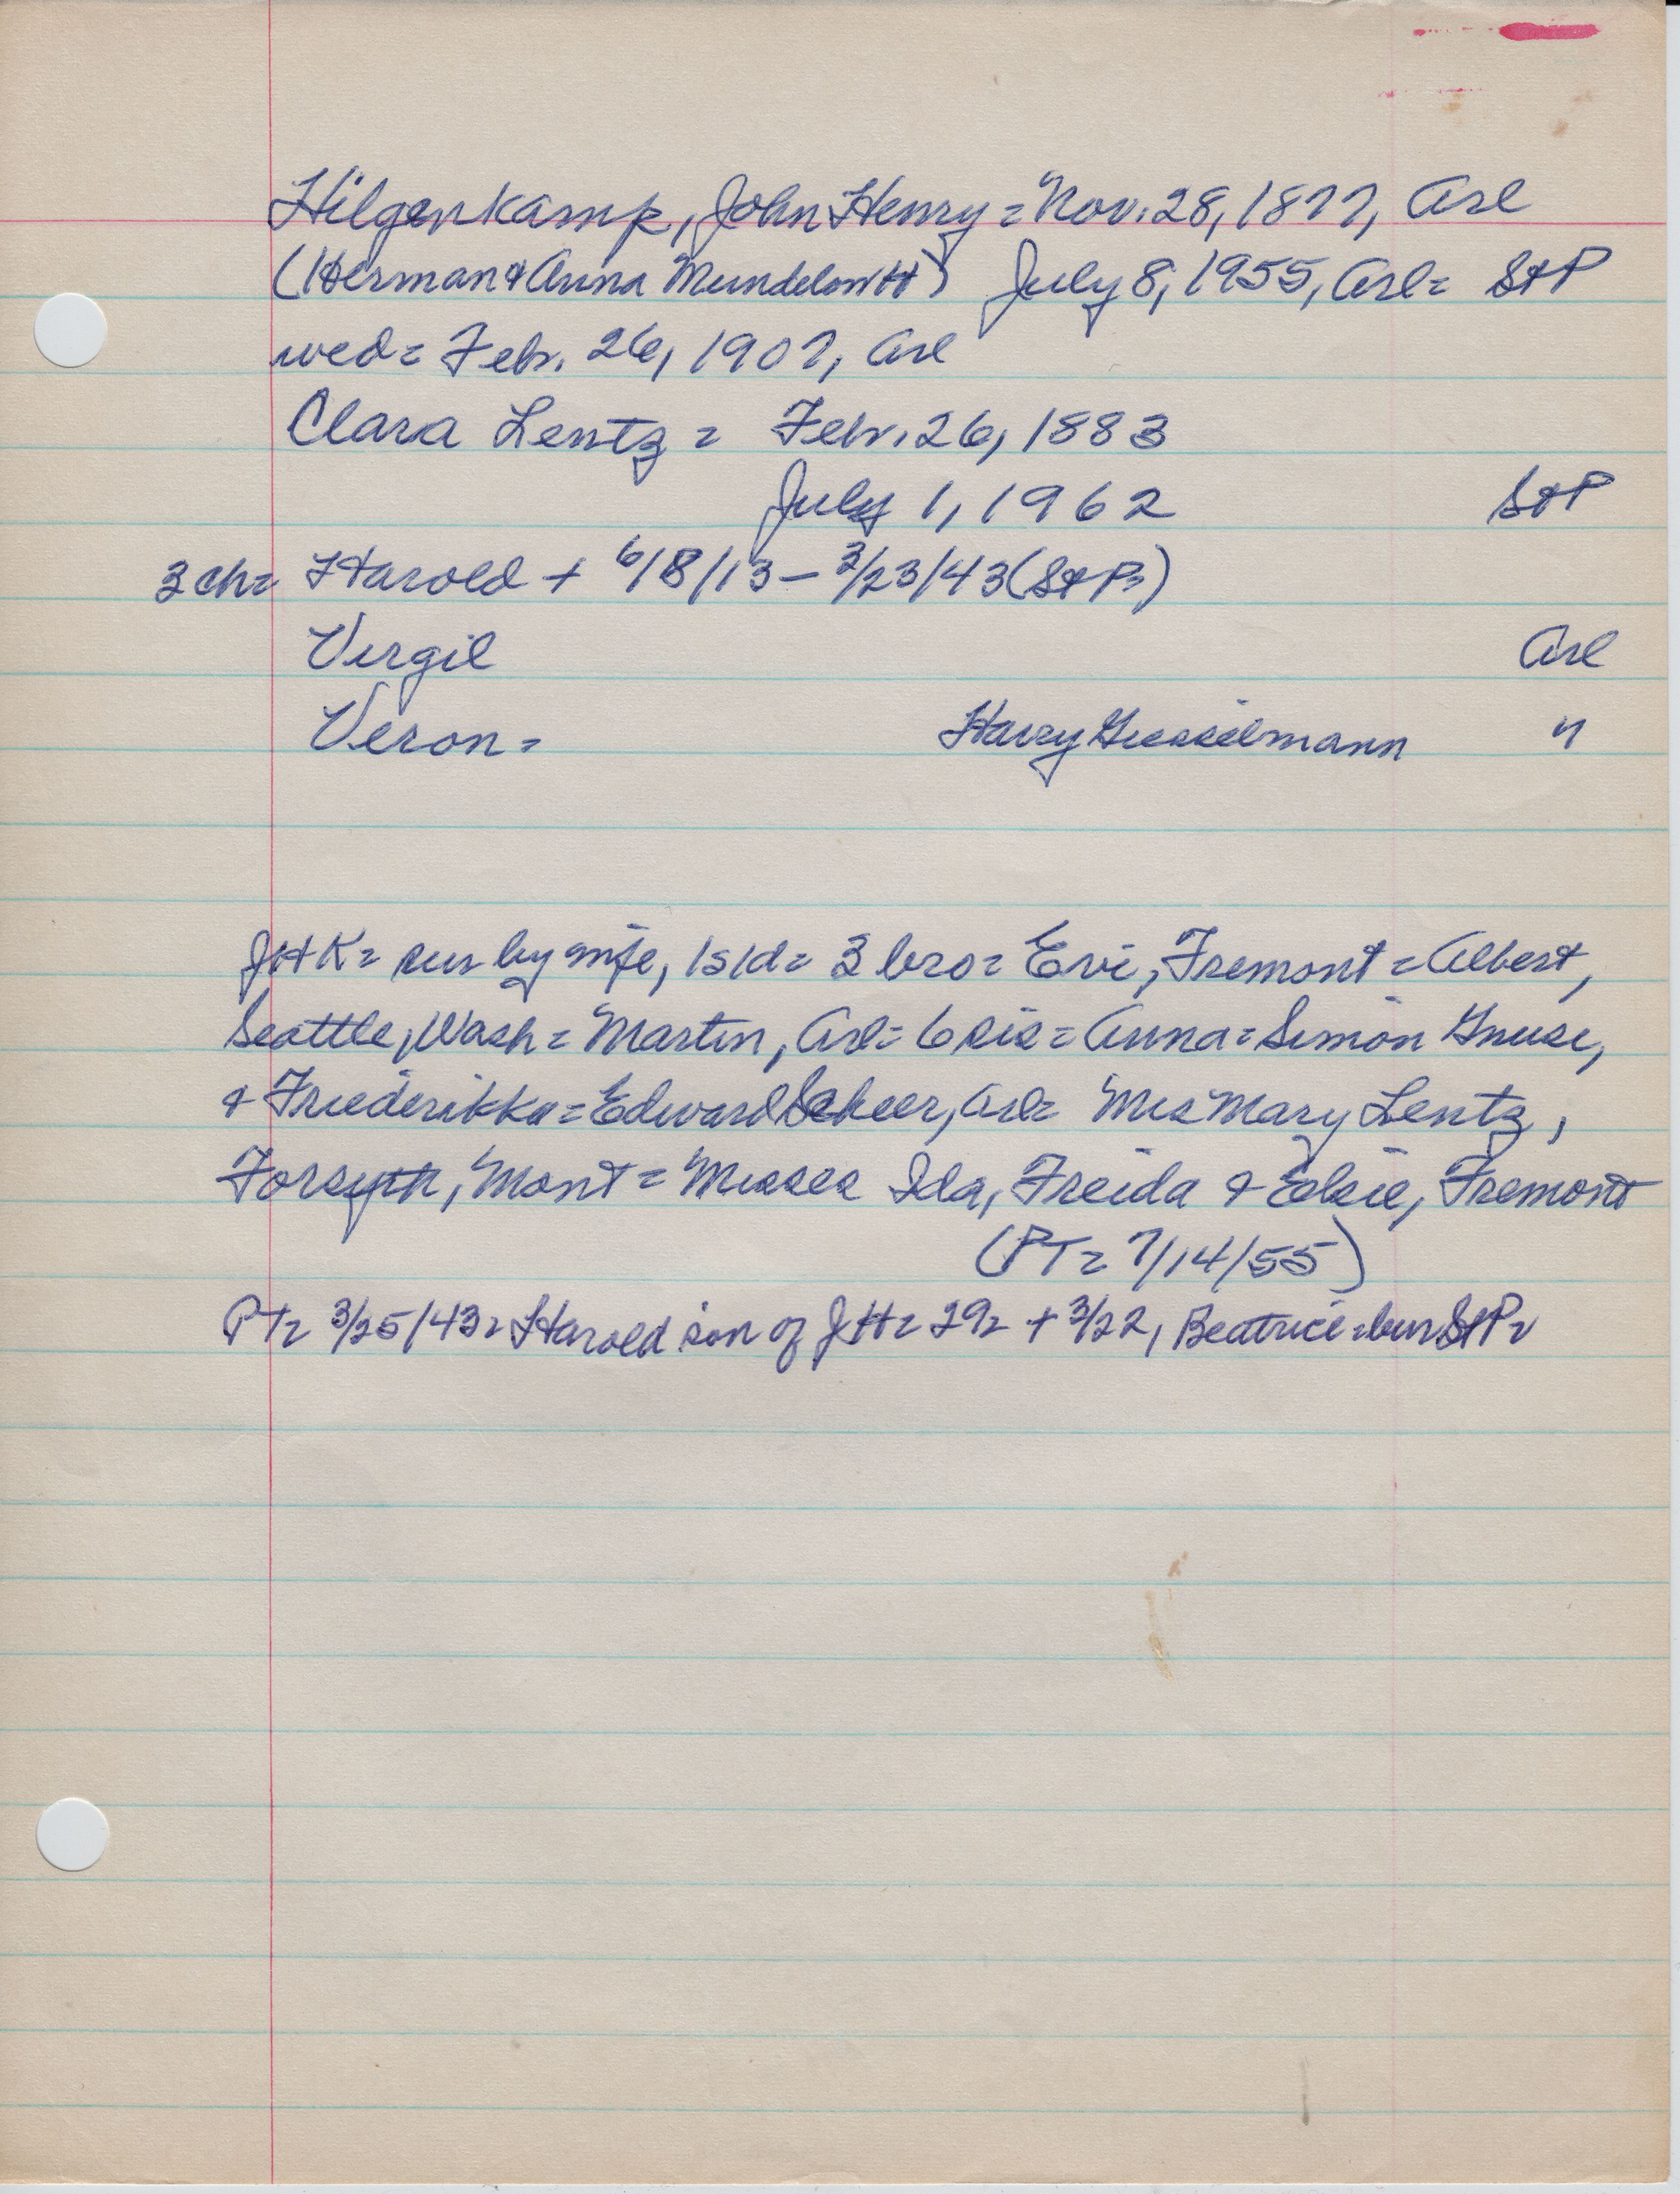 Hilgenkamp, John Henry = Nov. 28, 1877, Arl
(Herman & Anna Mundeloh H) July 8, 1955, Arl = StP
wed = Febr. 26, 1907, Arl
Clara Lentz = Febr. 26, 1883
July 1, 1962 StP
3 ch = Harold + 6/8/13 – 3/23/43 (St P=)
Vergil Arl
Veron = Harry "
JHK = sur by wife, 1s 1d = 3 bro = Ervi, Fremont = Albert,
Seattle, Wash = Martin, Arl = 6 sis = Anna = Simon Gnuse,
& Friederikka = Edward Scheer, Arl = Mrs Mary Lentz,
Forsyth, Mont = Misses Ida, Freida & Elsie, Fremont
(PT = 7/14/55)
PT = 3/25/43 = Harold son of JH = 29 = + 3/22, Beatrice = bur StP =